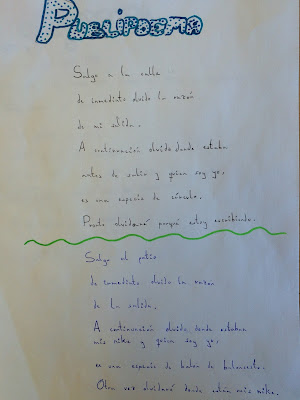 PUBLIPOEMA
Salgo a la calle
de inmediato olvido la razón
de mi salida.
A continuación olvido donde estaba
antes de salir y quien soy yo,
es una especie de círculo.
Pronto olvidaré porqué estoy escribiendo.
Salgo al patio
de inmediato olvido la razón
de la salida.
A continuación olvido donde estaban
mis niks y quien soy yo,
es una especie de balon de baloncesto.
Otra vez olvidaré donde están mis niks.